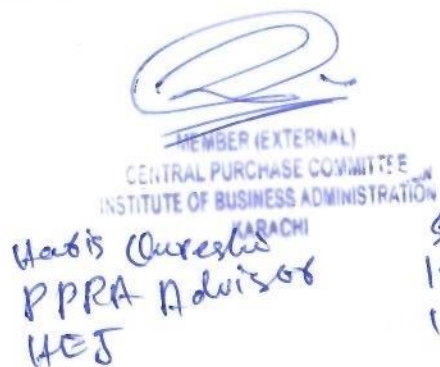 MEMBER (EXTERNAL)
CENTRAL PURCHASE COMMITTEE
INSTITUTE OF BUSINESS ADMINISTRATION
KARACHI
Haris Qureshi
PPRA Advisor
HEJ